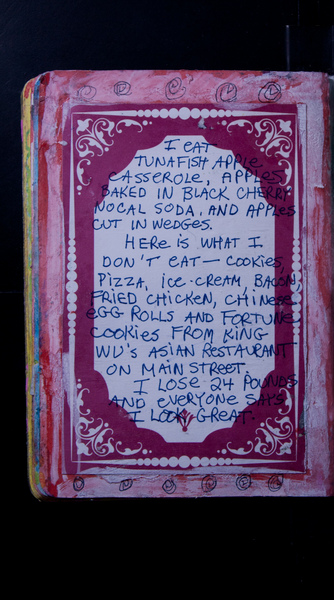 I EAT
TUNAFISH APPLE
CASSEROLE, APPLES
BAKED IN BLACK CHERRY
NOCAL SODA, AND APPLES
CUT IN WEDGES.
HERE IS WHAT I
DON'T EAT — COOKIES,
PIZZA, ICE-CREAM, BACON,
FRIED CHICKEN, CHINESE
EGG ROLLS AND FORTUNE
COOKIES FROM KING
WU'S ASIAN RESTAURANT
ON MAIN STREET.
I LOSE 24 POUNDS
AND EVERYONE SAYS
I LOOK GREAT.